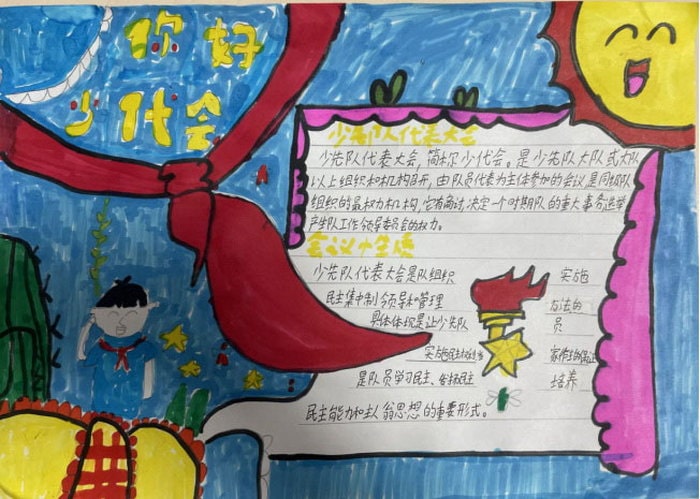 你好
少代会
少先队代表大会
少先队代表大会,简称少代会。是少先队大队或大队
以上组织和机构召开,由队员代表为主体参加的会议,是同级队
组织的最权力机构,它有商讨、决定一个时期队的重大事务选举
产生队工作领导委员会的权力。
会议
少先队代表大会是队组织 实施
民主集中制领导和管理 方法的
具体体现是让少先队 员
实施民主
是队员学习民主、发扬民主 培养
民主能和主人翁思想的重要形式。